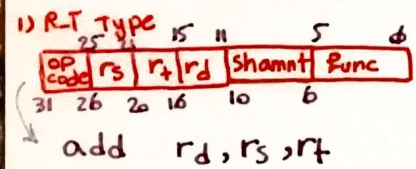 1) R-T Type
25 21 15 11 5 0
op code rs rt rd shamnt func
31 26 20 16 10 6
add rd, rs, rt